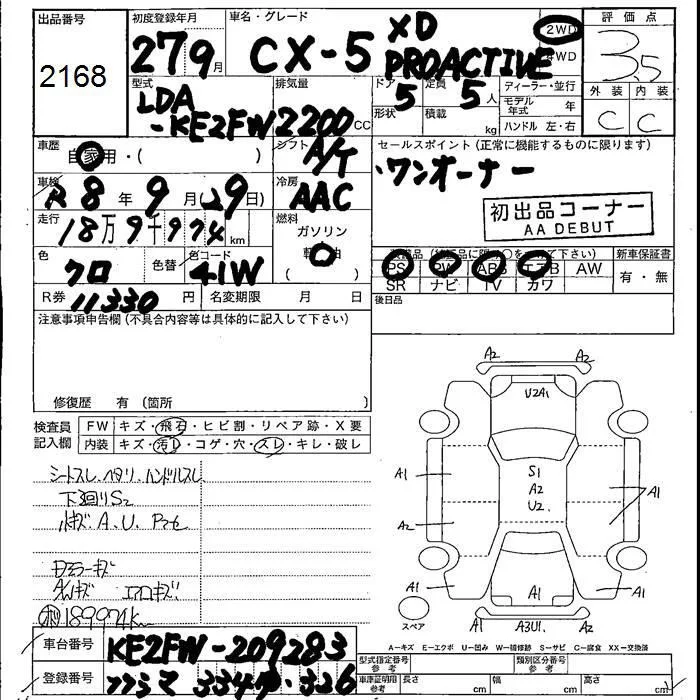 出品番号 2168
初度登録年月 27 9月
車名・グレード CX-5 XD PROACTIVE
2WD
4WD
評価点 3.5
外装 C 内装 C
型式 LDA-KE2FW
排気量 2200 CC
ドア 5
形状
定員 5人
積載 kg
ディーラー・並行
モデル年式 年
ハンドル 左・右
車歴 自家用・( )
シフト A/T
セールスポイント (正常に機能するものに限ります)
・ワンオーナー
初出品コーナー
AA DEBUT
車検 R8年9月(29日)
冷房 AAC
走行 18万9千974km
燃料 ガソリン
軽油
( )
色 クロ
色替
色コード 41W
PS PW ABS エアB AW
SR ナビ TV カワ
新車保証書 有・無
R券 11330円
名変期限 月 日
後日品
注意事項申告欄 (不具合内容等は具体的に記入して下さい)
修復歴 有 (箇所
検査員記入欄
FW キズ・飛石・ヒビ割・リペア跡・X要
内装 キズ・汚レ・コゲ・穴・スレ・キレ・破レ
シートスレ、ヘタリ、ハンドルスレ
下廻りS2
小キズ A、U、
ドアミラーキズ
A/Wキズ エアロキズ
189974km
A2 A2
U2A1
A1 S1 A1
A2 A2
U2
A1 A1 A1
A1 A3U1 A2
スペア
A-キズ E-エクボ U-凹み W-補修跡 S-サビ C-腐食 XX-交換済
車台番号 KE2FW-209283
型式指定番号 参考
類別区分番号 参考
登録番号 334 326
車庫証明用 参考 長さ cm 幅 cm 高さ cm